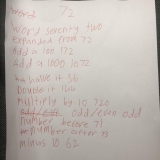 word 72
word seventy two
expanded form 72
add a 100 172
add a 1000 1072
halve it 36
Double it 144
multiply by 10 720
odd/even odd
number before 71
number after 73
minus 10 62